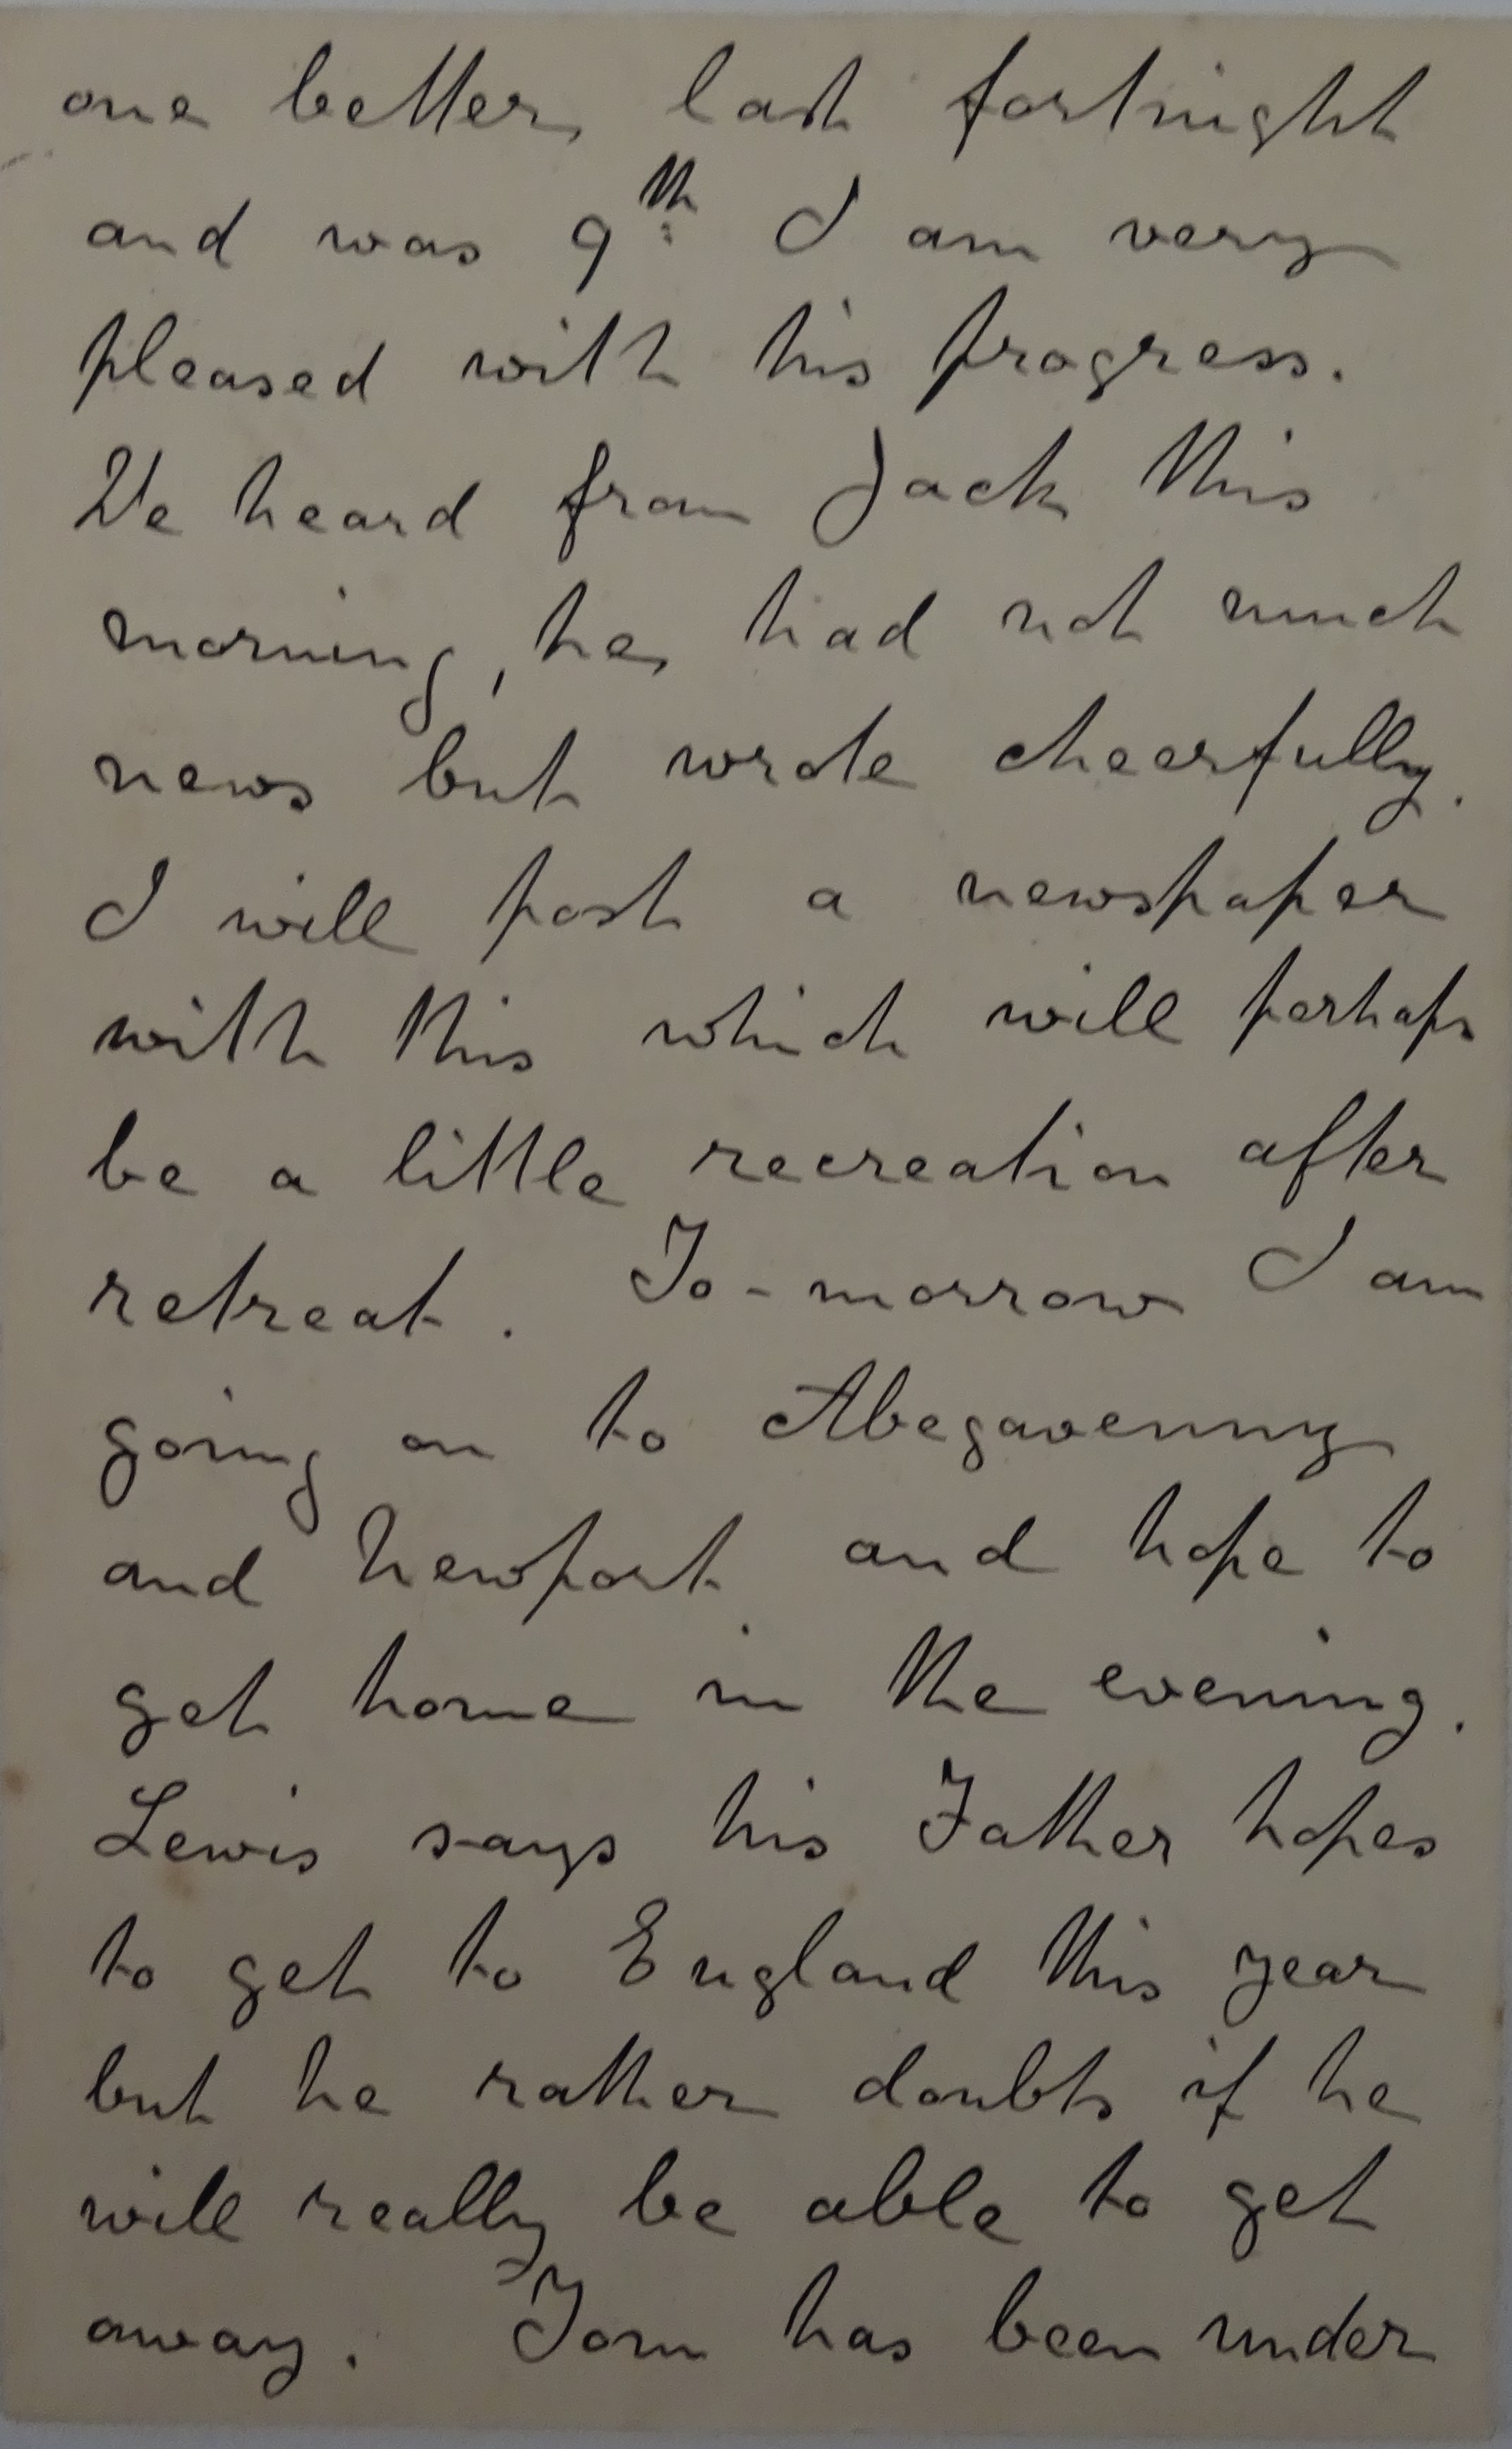 one better, last fortnight
and was 9th I am very
pleased with his progress.
We heard from Jack this
morning, he, had not much
news but wrote cheerfully.
I will post a newspaper
with this which will perhaps
be a little recreation after
retreat. To-morrow I am
going on to Abegavenny
and Newport and hope to
get home in the evening.
Lewis says his Father hopes
to get to England this year
but he rather doubts if he
will really be able to get
away. Tom has been under